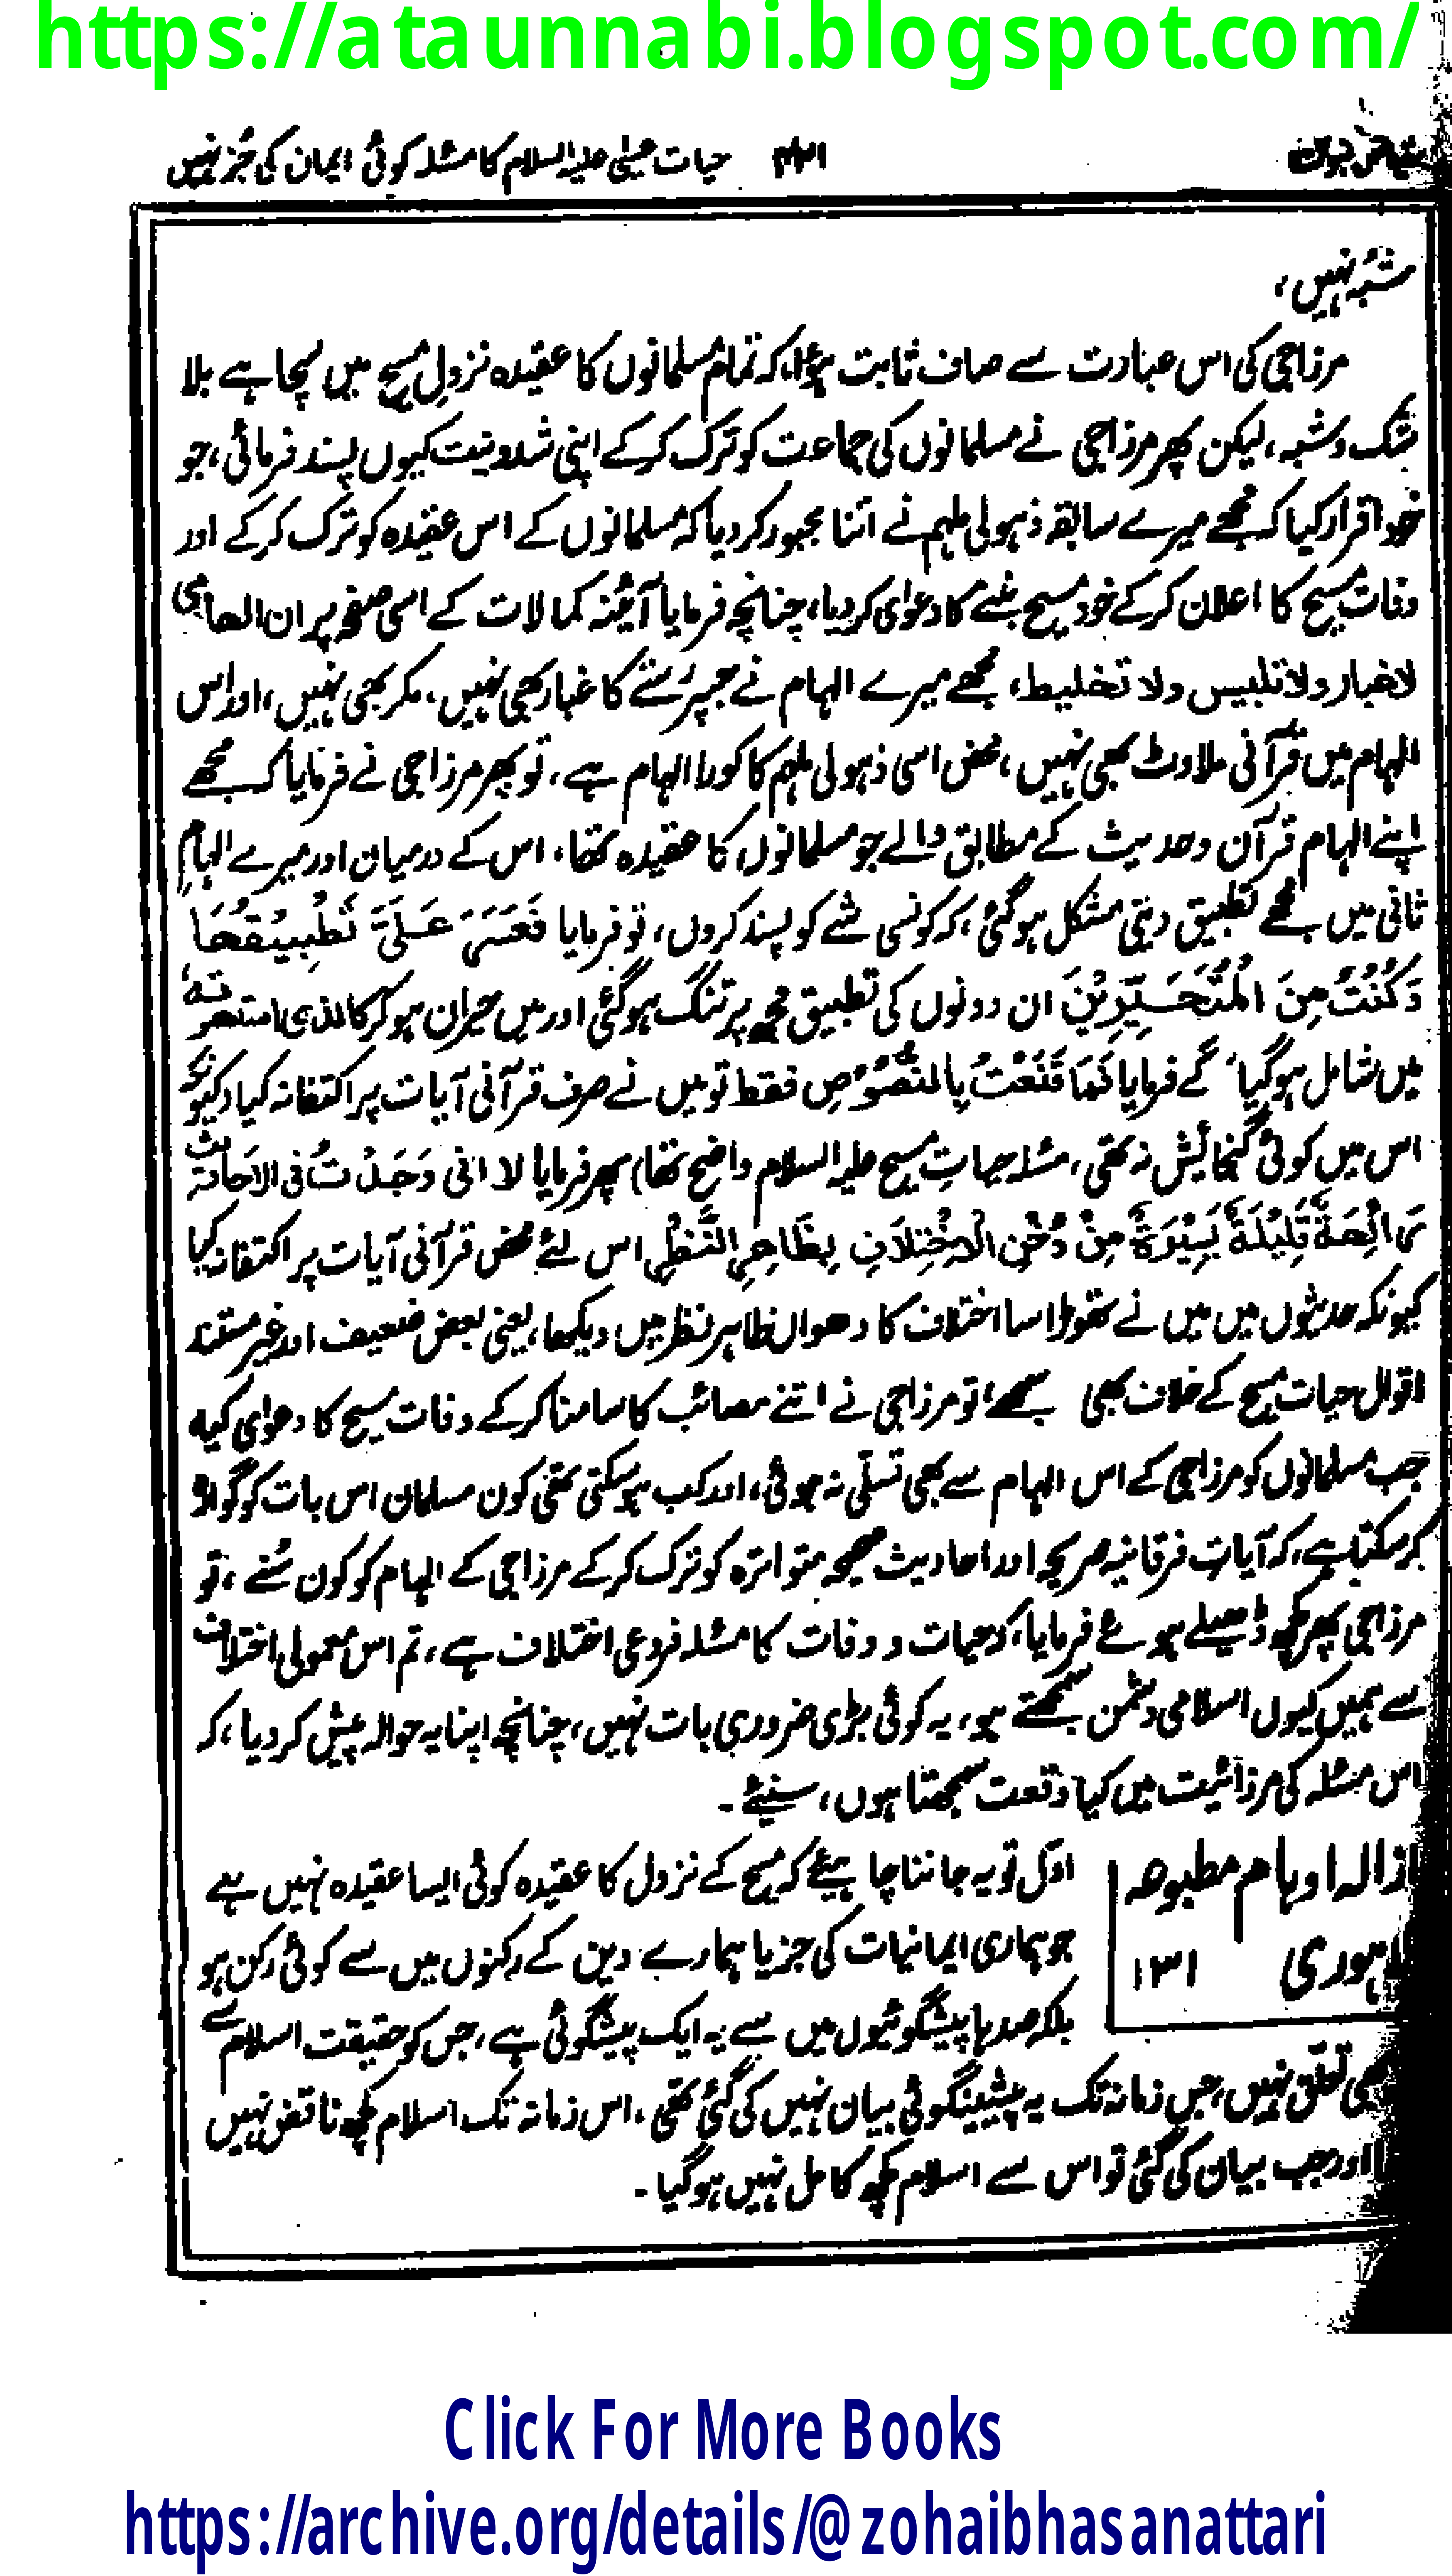 https://ataunnabi.blogspot.com/
۴۳۱ حیات عیسیٰ علیہ السلام کا مسئلہ کوئی ایمان کی جُز نہیں
شبہ نہیں،
مرزا جی کی اس عبادت سے صاف ثابت ہؤا، کہ تمام مسلمانوں کا عقیدہ نزولِ مسیح میں سچا ہے بلا
شک و شبہ، لیکن پھر مرزا جی نے مسلمانوں کی جماعت کو ترک کرکے اپنی کیوں پسند فرمائی، جو
خود اقرار کیا کہ مجھے میرے سابقہ ذہولی ملہم نے اتنا مجبور کر دیا کہ مسلمانوں کے اس عقیدہ کو ترک کرکے اور
وفات مسیح کا اعلان کرکے خود مسیح بننے کا دعوٰی کر دیا، چنانچہ فرمایا آئینہ کمالات کے اسی صفحہ پر ان الھامی
لاغبار ولا تلبیس ولا تخلیط، مجھے میرے الہام نے جسپر شک کا غبار بھی نہیں، مکر بھی نہیں، اور اس
الہام میں قرآنی ملاوٹ بھی نہیں، محض اسی ذہولی ملہم کا کورا الہام ہے، تو پھر مرزا جی نے فرمایا کہ مجھے
اپنے الہام قرآن و حدیث کے مطابق والے جو مسلمانوں کا عقیدہ تھا، اس کے درمیان اور میرے الہامِ
ثانی میں مجھے تطبیق دینی مشکل ہوگئی، کہ کونسی شے کو پسند کروں، تو فرمایا فَعَسَرَ عَلَیَّ تَطْبِیْقُھَا
وَکُنْتُ مِنَ الْمُتَحَیِّرِیْنَ ان دونوں کی تطبیق مجھ پر تنگ ہوگئی اور میں حیران ہو کر کالذی استھوتہ
میں شامل ہوگیا، آگے فرمایا فَمَا قَنَعْتُ بِالمَنْصُوْصِ فقط تو میں نے صرف قرآنی آیات پر اکتفا نہ کیا (کیونکہ
اس میں کوئی گنجائش نہ تھی، مسئلہ حیاتِ مسیح علیہ السلام واضح تھا) پھر فرمایا لا انی وَجَدْتُ فی الاحَادیث
رَائِحَۃً قَلِیْلَۃً یَسِیْرَۃً مِنْ دُخْنِ الْاِخْتِلَافِ بِظَاھِرِ النَّظْرِ اس لئے محض قرآنی آیات پر اکتفا نہ کیا
کیونکہ حدیثوں میں میں نے تھوڑا سا اختلاف کا دھواں ظاہر نظر میں دیکھا، یعنی بعض ضعیف اور غیر مستند
اقوال حیات مسیح کے خلاف بھی سمجھے، تو مرزا جی نے اتنے مصائب کا سامنا کرکے وفات مسیح کا دعوٰی کیا،
جب مسلمانوں کو مرزا جی کے اس الہام سے بھی تسلّی نہ ہوئی، اور کب ہو سکتی تھی کون مسلمان اس بات کو گوارا
کر سکتا ہے، کہ آیات فرقانیہ صریحہ اور احادیث صحیحہ متواترہ کو ترک کرکے مرزا جی کے الہام کو کون سُنے، تو
مرزا جی پھر کچھ ڈھیلے ہوئے فرمایا، کہ حیات و وفات کا مسئلہ فروعی اختلاف ہے، تم اس معمولی اختلاف
سے ہمیں کیوں اسلامی دشمن سمجھتے ہو، یہ کوئی بڑی ضروری بات نہیں، چنانچہ اپنا یہ حوالہ پیش کر دیا، کہ
اس مسئلہ کی مرزائیت میں کیا وقعت سمجھتا ہوں، سنیئے۔
ازالہ اوہام مطبوعہ
لاہوری ۱۳۱
اوّل تو یہ جاننا چاہیئے کہ مسیح کے نزول کا عقیدہ کوئی ایسا عقیدہ نہیں ہے
جو ہماری ایمانیات کی جز یا ہمارے دین کے رکنوں میں سے کوئی رکن ہو
بلکہ صدہا پیشگوئیوں میں سے یہ ایک پیشگوئی ہے، جس کو حقیقت اسلام سے
تعلق نہیں، جس زمانہ تک یہ پیشینگوئی بیان نہیں کی گئی تھی، اس زمانہ تک اسلام کچھ ناقص نہیں
اور جب بیان کی گئی تو اس سے اسلام کچھ کامل نہیں ہوگیا۔
Click For More Books
https://archive.org/details/@zohaibhasanattari